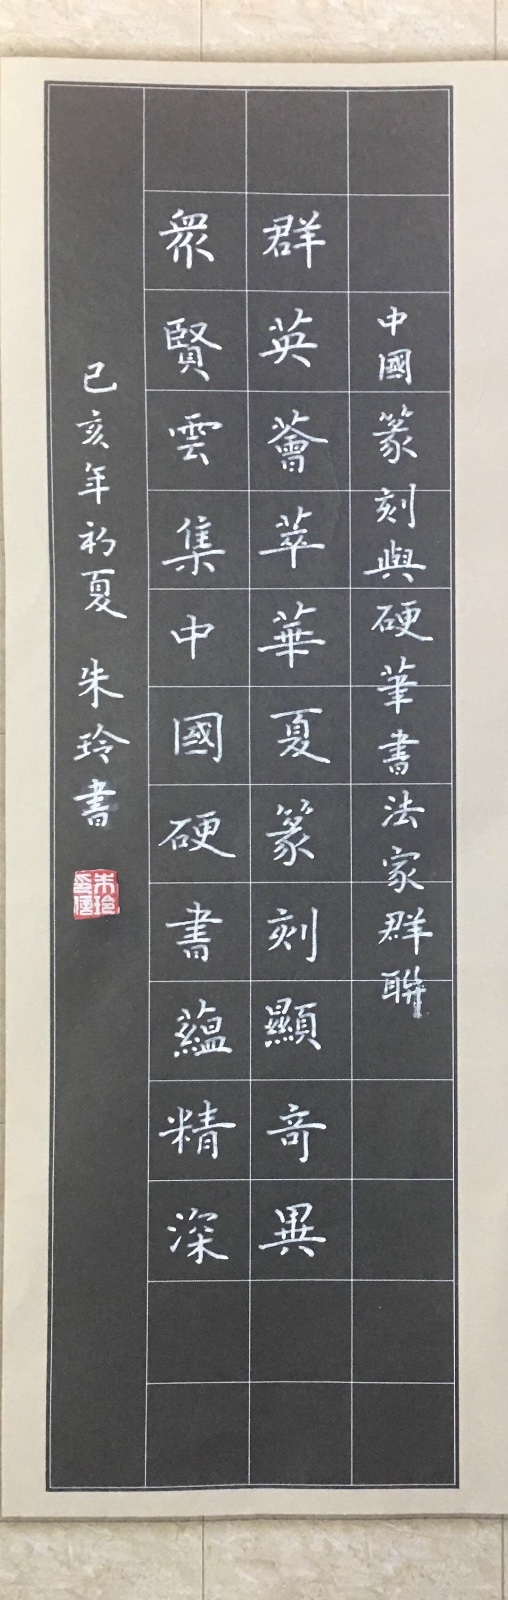 中國篆刻與硬筆書法家群聯
群英薈萃華夏篆刻顯奇異
衆賢雲集中國硬書蘊精深
己亥年初夏 朱玲書
朱玲